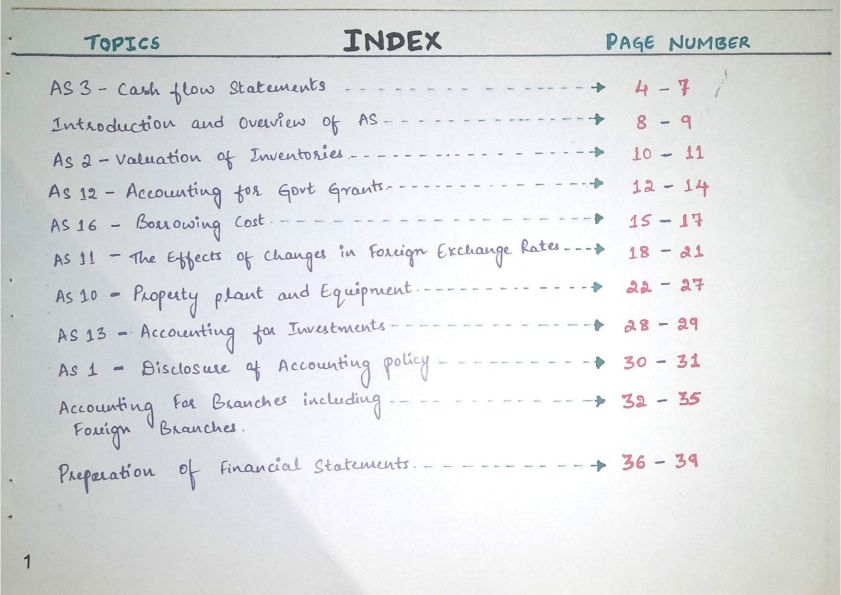 TOPICS INDEX PAGE NUMBER
AS 3 - Cash flow Statements ----------> 4 - 7
Introduction and Overview of AS ----------> 8 - 9
AS 2 - Valuation of Inventories ----------> 10 - 11
AS 12 - Accounting for Govt Grants ----------> 12 - 14
AS 16 - Borrowing Cost ----------> 15 - 17
AS 11 - The Effects of Changes in Foreign Exchange Rates ---> 18 - 21
AS 10 - Property plant and Equipment ----------> 22 - 27
AS 13 - Accounting for Investments ----------> 28 - 29
AS 1 - Disclosure of Accounting policy ----------> 30 - 31
Accounting For Branches including ----------> 32 - 35
Foreign Branches.
Preparation of Financial Statements. ----------> 36 - 39
1